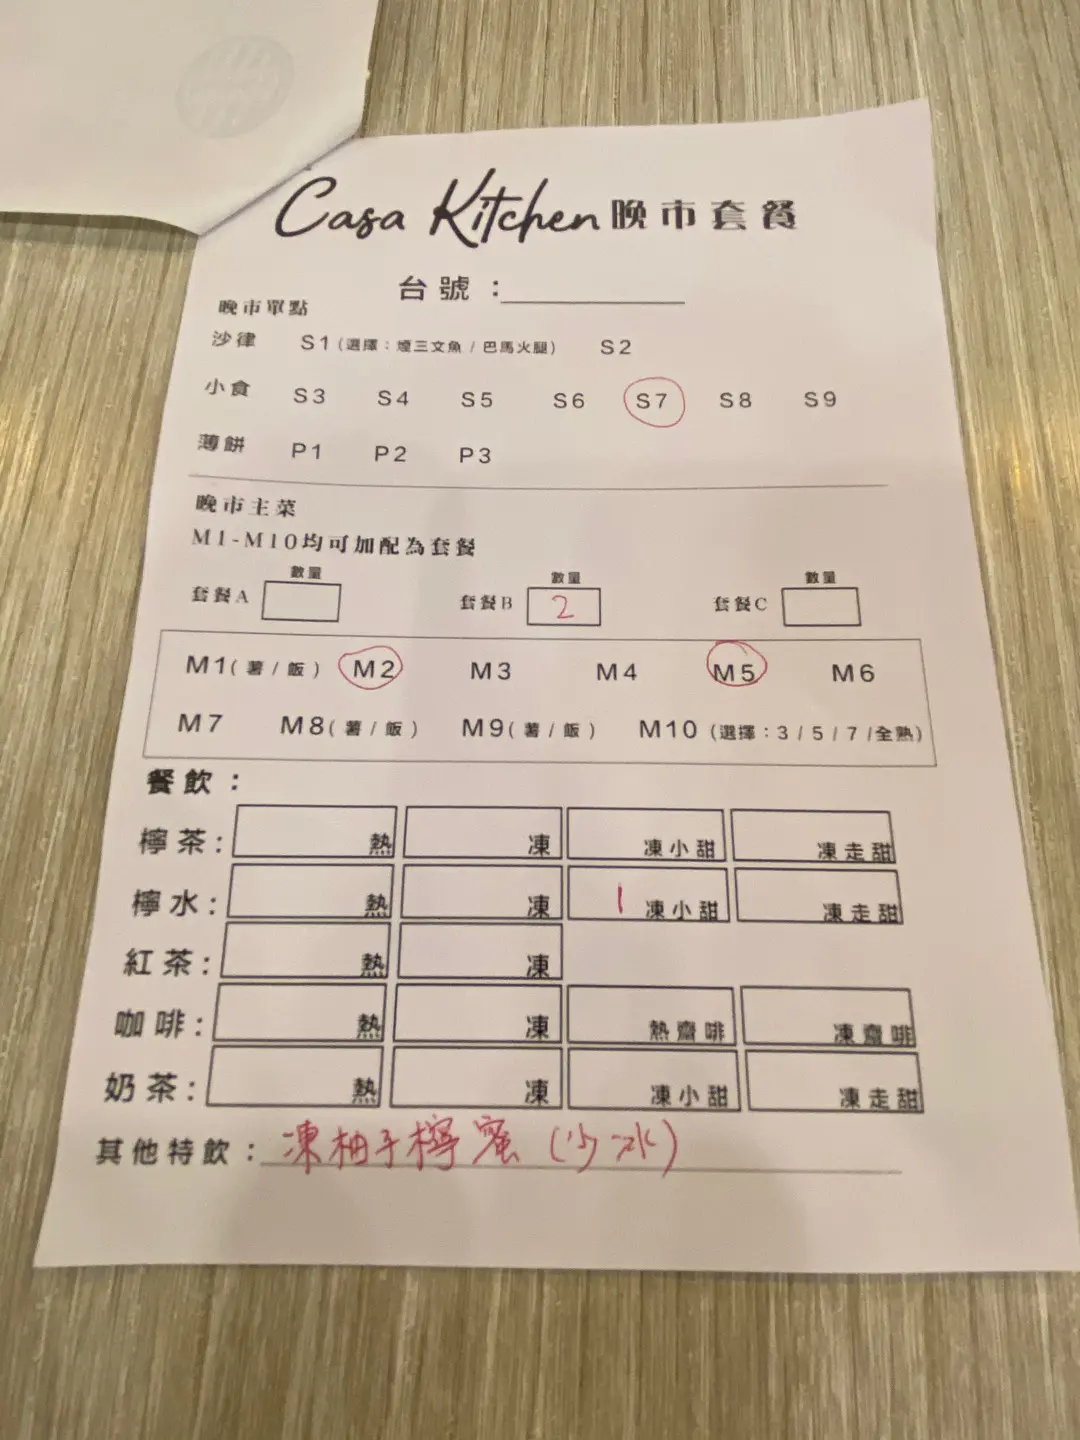 Casa Kitchen 晚市套餐
台號：
晚市單點
沙律 S1(選擇：煙三文魚 / 巴馬火腿) S2
小食 S3 S4 S5 S6 S7 S8 S9
薄餅 P1 P2 P3
晚市主菜
M1-M10均可加配為套餐
數量 數量 數量
套餐A 套餐B 2 套餐C
M1(薯/飯) M2 M3 M4 M5 M6
M7 M8(薯/飯) M9(薯/飯) M10 (選擇：3 / 5 / 7 /全熟)
餐飲：
檸茶: 熱 凍 凍小甜 凍走甜
檸水: 熱 凍 1 凍小甜 凍走甜
紅茶: 熱 凍
咖啡: 熱 凍 熱齋啡 凍齋啡
奶茶: 熱 凍 凍小甜 凍走甜
其他特飲：凍柚子檸蜜 (少冰)